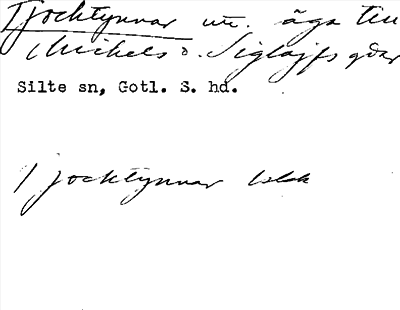 Tjocktynnar utr. äga till
Michels o. Siglajfs gdar
Silte sn, Gotl. S. hd.
Tjocktynnar